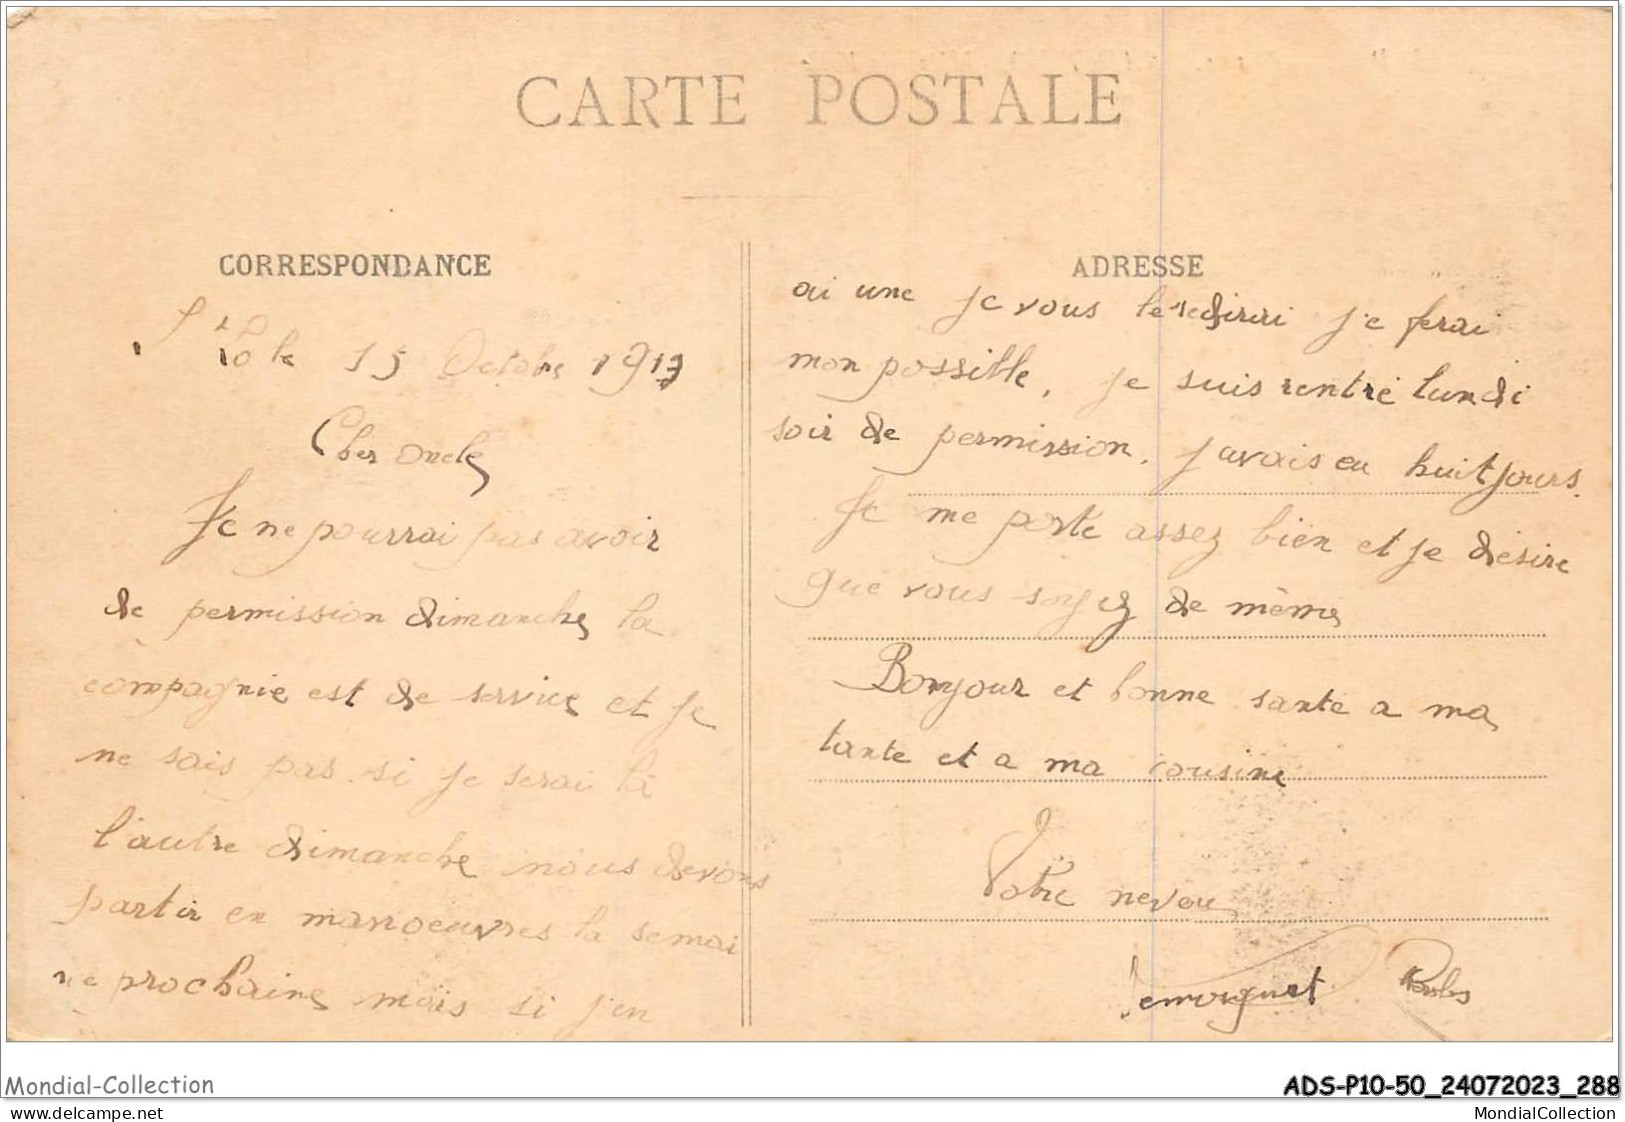 CARTE POSTALE
CORRESPONDANCE
St Lo le 15 Octobre 1913
Cher Oncle
Je ne pourrai pas avoir
de permission dimanche la
compagnie est de service et je
ne sais pas si je serai là
l'autre dimanche nous devons
partir en manoeuvres la semai
ne prochaine mais si j'en
ADRESSE
ai une je vous le redirai je ferai
mon possible, je suis rentré lundi
soir de permission, j'avais eu huit jours.
Je me porte assez bien et je désire
que vous soyez de même
Bonjour et bonne santé a ma
tante et a ma cousine
Votre neveu
Mondial-Collection
ADS-P10-50_24072023_288
www.delcampe.net
MondialCollection